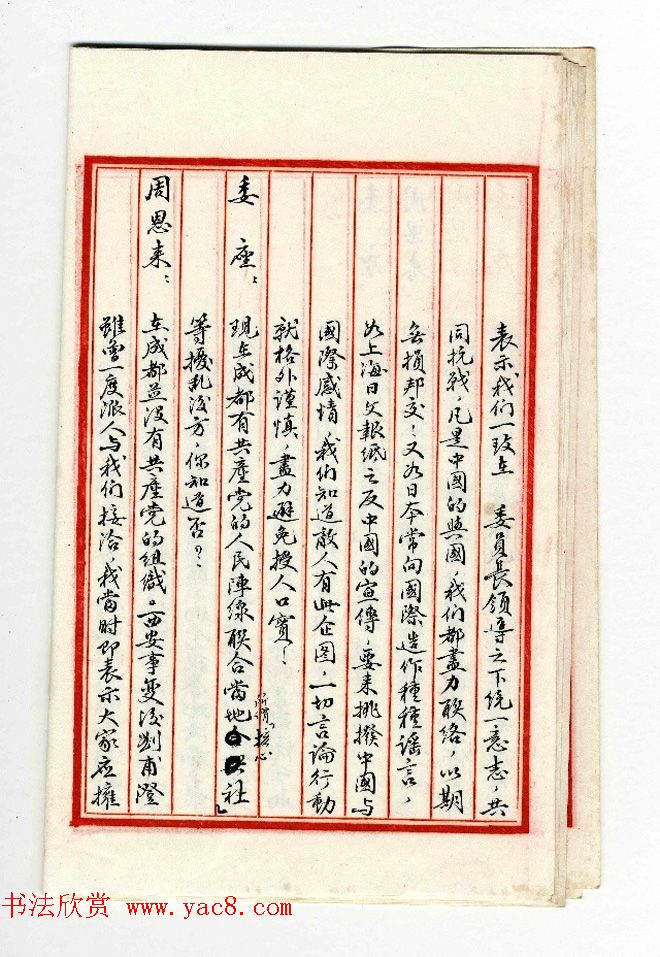 表示我们一致在 委員長領導之下統一意志，共
同抗战，凡是中國的與國，我们都盡力联络，以期
無損邦交！又如日本常向國際造作種種謡言，
如上海日文報紙之反中國的宣傳，要来挑撥中國与
國際感情，我们知道敵人有此企图，一切言論行動
就格外谨慎，盡力避免授人口實！
委座： 現在成都有共產党的人民陣線联合當地所谓「核心社」
等擾乱後方，你知道否？
周恩来： 在成都並没有共產党的組織。西安事变後刘甫澄
雖曾一度派人与我们接洽，我當时即表示大家应擁
书法欣赏 www.yac8.com